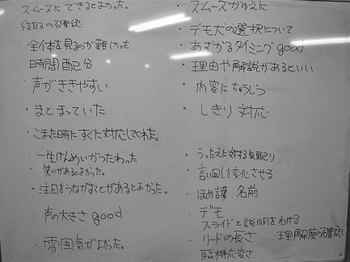 スムーズに できるとよかった。
段取の確認
全体を見るのが難しかった
時間配分
声がききやすい
まとまっていた
こまた時にすぐに対応してくれた。
一生けんめいがつたわった
笑いがあるとよかった。
注目をうながすことがあるとよかった。
声の大きさ good
雰囲気がよかった。
スムーズがゆえに
デモ犬の選択について
あずかるタイミング good
理由や解説があるといい
内容に
しきり 対応
うったえに対する気配り
言い回しを変化させる
ほめ言葉 名前
デモ
スライドと説明をわける
リードの長さ 理解度の確認
臨機応変さ